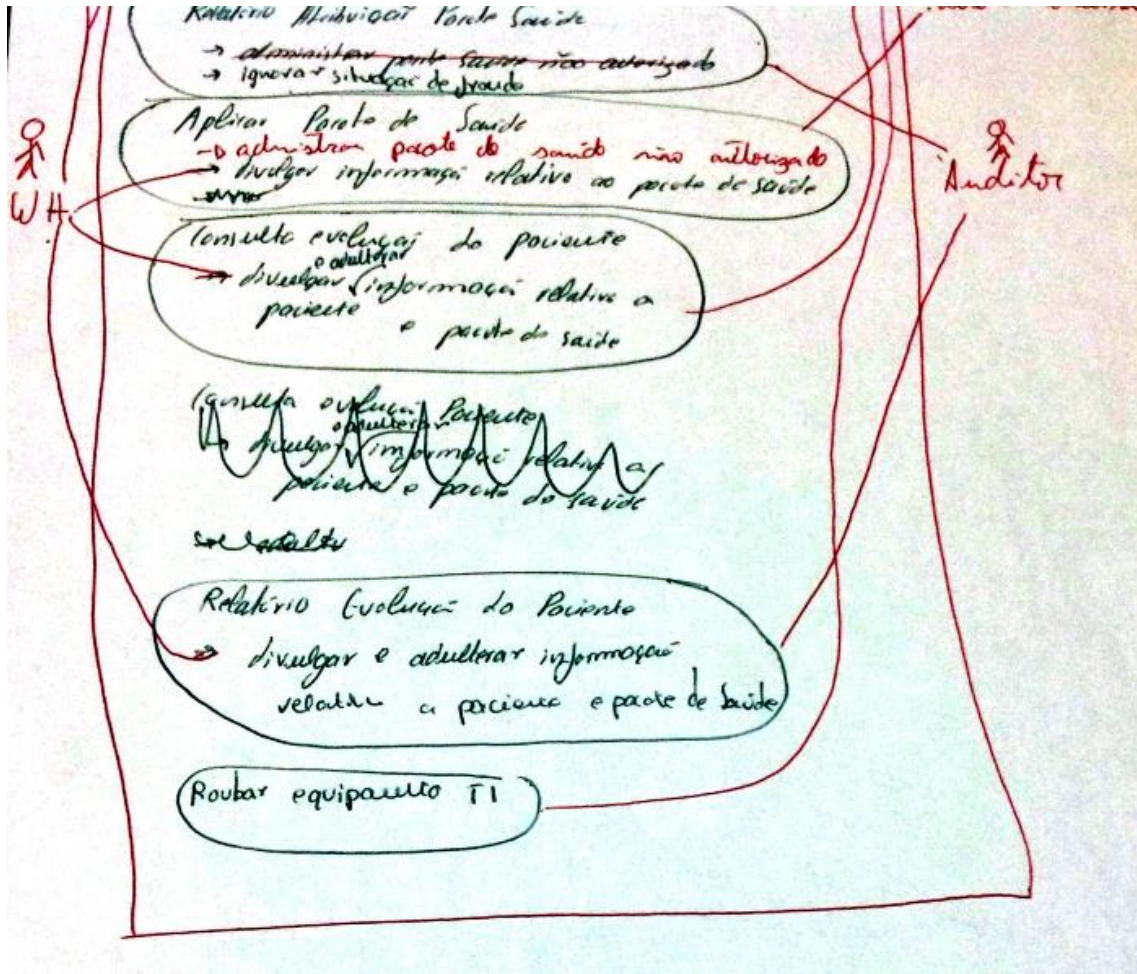 Relatório Atribuição Pacote Saúde
→ administrar pacote saúde não autorizado
→ ignorar situação de fraude
Aplicar Pacote de Saúde
→ administrar pacote de saúde não autorizado
→ divulgar informação relativo ao pacote de saúde
WH
Auditor
Consulta evolução do paciente
e adulterar
→ divulgar informação relativo a
paciente
e pacote de saúde
Consulta evolução Paciente
e adulterar
→ divulgar informação relativa a
paciente e pacote de saúde
Relatório Evolução do Paciente
→ divulgar e adulterar informação
relativa a paciente e pacote de Saúde
Roubar equipamento TI